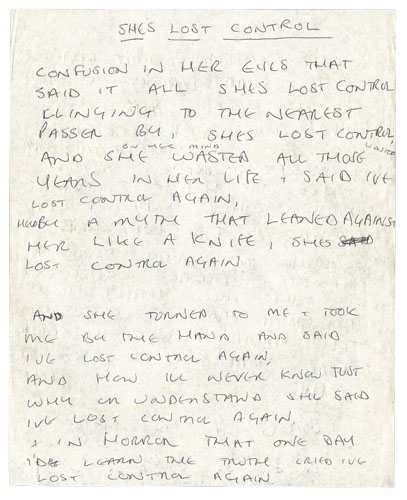 SHES LOST CONTROL
CONFUSION IN HER EYES THAT
SAID IT ALL SHES LOST CONTROL
CLINGING TO THE NEAREST
PASSER BY, SHES LOST CONTROL,
ON HER MIND
AND SHE WASTED ALL THOSE
YEARS IN HER LIFE + SAID IVE
LOST CONTROL AGAIN,
A MYTH THAT LEANED AGAINST
HER LIKE A KNIFE, SHES
LOST CONTROL AGAIN
AND SHE TURNED TO ME + TOOK
ME BY THE HAND AND SAID
I'VE LOST CONTROL AGAIN,
AND HOW ILL NEVER KNOW JUST
WHY OR UNDERSTAND SHE SAID
IVE LOST CONTROL AGAIN,
+ IN HORROR THAT ONE DAY
I'D LEARN THE TRUTH CRIED IVE
LOST CONTROL AGAIN